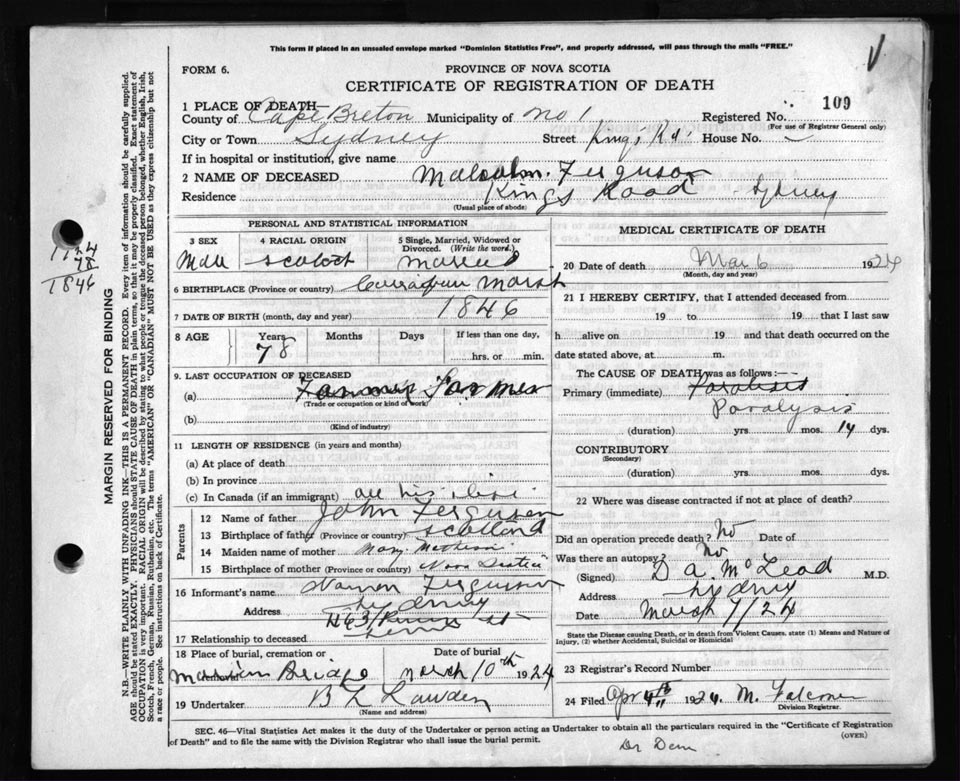 This form if placed in an unsealed envelope marked "Dominion Statistics Free", and properly addressed, will pass through the mails "FREE."
FORM 6.
PROVINCE OF NOVA SCOTIA
CERTIFICATE OF REGISTRATION OF DEATH
109
1 PLACE OF DEATH—
County of Cape Breton Municipality of No 1 Registered No.
(For use of Registrar General only)
City or Town Sydney Street Kings Rd. House No.
If in hospital or institution, give name
2 NAME OF DECEASED Malcolm. Ferguson
Residence Kings Road - Sydney
(Usual place of abode)
PERSONAL AND STATISTICAL INFORMATION
3 SEX 4 RACIAL ORIGIN 5 Single, Married, Widowed or Divorced. (Write the word.)
Male Scotch Married
6 BIRTHPLACE (Province or country) Marsh
7 DATE OF BIRTH (month, day and year) 1846
8 AGE Years Months Days If less than one day,
78 hrs. or min.
9. LAST OCCUPATION OF DECEASED
(a) Farmer
(Trade or occupation or kind of work)
(b)
(Kind of industry)
11 LENGTH OF RESIDENCE (in years and months)
(a) At place of death
(b) In province
(c) In Canada (if an immigrant) all his life
Parents
12 Name of father John Ferguson
13 Birthplace of father (Province or country) Scotland
14 Maiden name of mother Mary
15 Birthplace of mother (Province or country) Nova Scotia
16 Informant's name Ferguson
Address Sydney
St
17 Relationship to deceased
18 Place of burial, cremation or Date of burial
Marion Bridge March 10th 1924
19 Undertaker B L
(Name and address)
MEDICAL CERTIFICATE OF DEATH
20 Date of death Mar 6 1924
(Month, day and year)
21 I HEREBY CERTIFY, that I attended deceased from
19 to 19 that I last saw
h alive on 19 and that death occurred on the
date stated above, at m.
The CAUSE OF DEATH was as follows:—
Primary (immediate)
Paralysis
(duration) yrs. mos. 14 dys.
CONTRIBUTORY
(Secondary)
(duration) yrs. mos. dys.
22 Where was disease contracted if not at place of death?
Did an operation precede death? No Date of
Was there an autopsy? No
(Signed) D A. McLeod M.D.
Address Sydney
Date March 7/24
State the Disease causing Death, or in death from Violent Causes, state (1) Means and Nature of Injury, (2) whether Accidental, Suicidal or Homicidal
23 Registrar's Record Number
24 Filed Apr 4th 1924. M. Falconer
Division Registrar.
SEC. 46—Vital Statistics Act makes it the duty of the Undertaker or person acting as Undertaker to obtain all the particulars required in the "Certificate of Registration
of Death" and to file the same with the Division Registrar who shall issue the burial permit.
(OVER)
MARGIN RESERVED FOR BINDING
N.B.—WRITE PLAINLY WITH UNFADING INK—THIS IS A PERMANENT RECORD. Every item of information should be carefully supplied.
AGE should be stated EXACTLY. PHYSICIANS should STATE CAUSE OF DEATH in plain terms, so that it may be properly classified. Exact statement of
OCCUPATION is very important. RACIAL ORIGIN will be described by stating to what people or tongue the deceased person belonged, whether English, Irish,
Scotch, French, German, Russian, Ruthenian, etc. The terms "AMERICAN" OR "CANADIAN" MUST NOT BE USED as they express citizenship but not
a race or people. See instructions on back of Certificate.
1924
78
1846